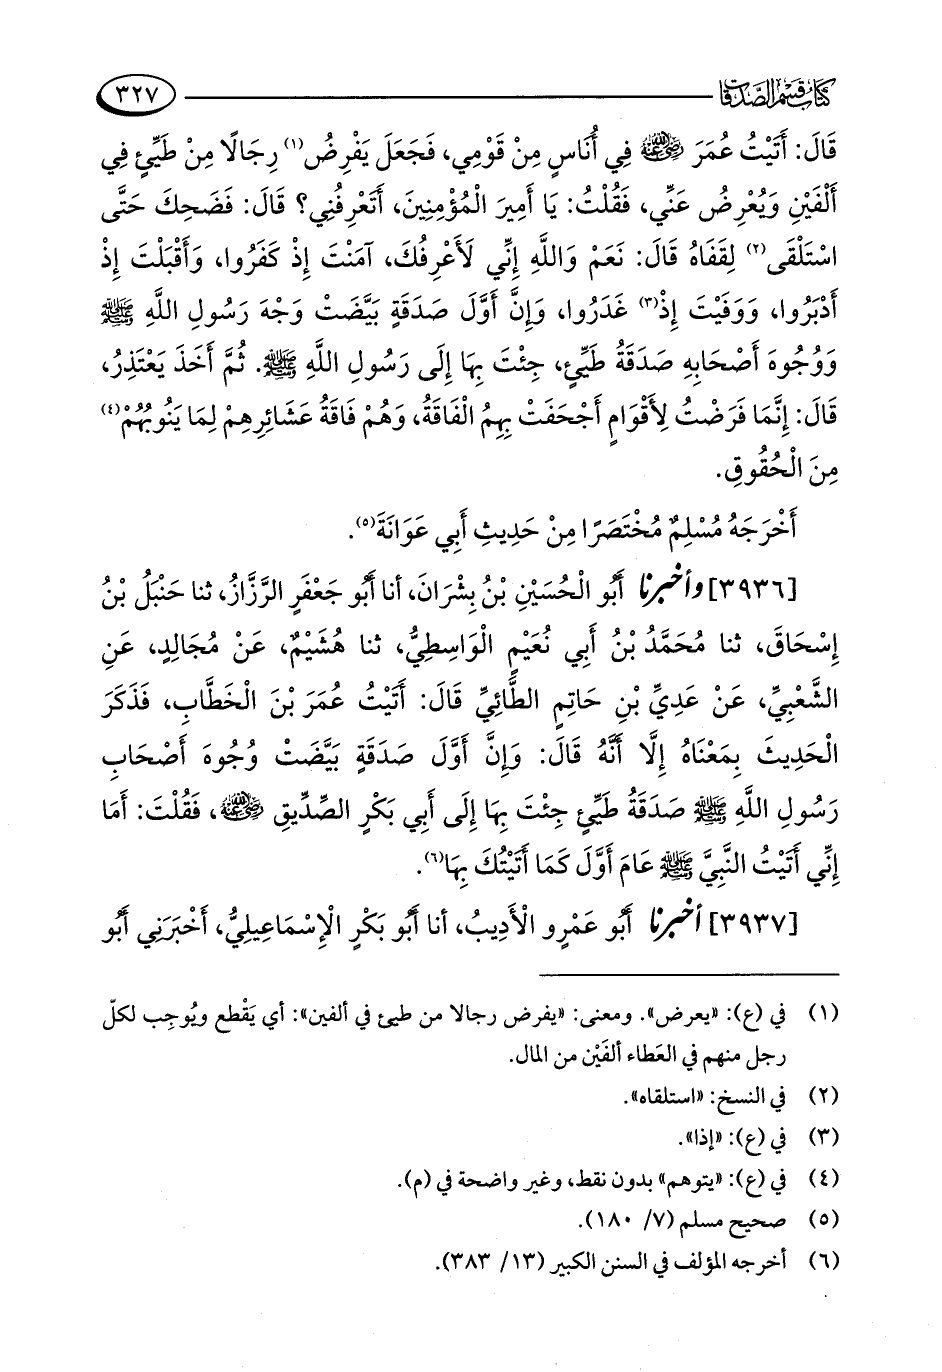 كتاب قسم الصدقات ٣٢٧
قَالَ: أَتَيْتُ عُمَرَ رضي الله عنه فِي أُنَاسٍ مِنْ قَوْمِي، فَجَعَلَ يَفْرِضُ(١) رِجَالًا مِنْ طَيِّئٍ فِي
أَلْفَيْنِ وَيُعْرِضُ عَنِّي، فَقُلْتُ: يَا أَمِيرَ الْمُؤْمِنِينَ، أَتَعْرِفُنِي؟ قَالَ: فَضَحِكَ حَتَّى
اسْتَلْقَى(٢) لِقَفَاهُ قَالَ: نَعَمْ وَاللَّهِ إِنِّي لَأَعْرِفُكَ، آمَنْتَ إِذْ كَفَرُوا، وَأَقْبَلْتَ إِذْ
أَدْبَرُوا، وَوَفَيْتَ إِذْ(٣) غَدَرُوا، وَإِنَّ أَوَّلَ صَدَقَةٍ بَيَّضَتْ وَجْهَ رَسُولِ اللَّهِ ﷺ
وَوُجُوهَ أَصْحَابِهِ صَدَقَةُ طَيِّئٍ، جِئْتَ بِهَا إِلَى رَسُولِ اللَّهِ ﷺ. ثُمَّ أَخَذَ يَعْتَذِرُ،
قَالَ: إِنَّمَا فَرَضْتُ لِأَقْوَامٍ أَجْحَفَتْ بِهِمُ الْفَاقَةُ، وَهُمْ فَاقَةُ عَشَائِرِهِمْ لِمَا يَنُوبُهُمْ(٤)
مِنَ الْحُقُوقِ.
أَخْرَجَهُ مُسْلِمٌ مُخْتَصَرًا مِنْ حَدِيثِ أَبِي عَوَانَةَ(٥).
[٣٩٣٦] وأخبرنا أَبُو الْحُسَيْنِ بْنُ بِشْرَانَ، أنا أَبُو جَعْفَرٍ الرَّزَّازُ، ثنا حَنْبَلُ بْنُ
إِسْحَاقَ، ثنا مُحَمَّدُ بْنُ أَبِي نُعَيْمٍ الْوَاسِطِيُّ، ثنا هُشَيْمٌ، عَنْ مُجَالِدٍ، عَنِ
الشَّعْبِيِّ، عَنْ عَدِيِّ بْنِ حَاتِمٍ الطَّائِيِّ قَالَ: أَتَيْتُ عُمَرَ بْنَ الْخَطَّابِ، فَذَكَرَ
الْحَدِيثَ بِمَعْنَاهُ إِلَّا أَنَّهُ قَالَ: وَإِنَّ أَوَّلَ صَدَقَةٍ بَيَّضَتْ وُجُوهَ أَصْحَابِ
رَسُولِ اللَّهِ ﷺ صَدَقَةُ طَيِّئٍ جِئْتَ بِهَا إِلَى أَبِي بَكْرٍ الصِّدِّيقِ رضي الله عنه، فَقُلْتَ: أَمَا
إِنِّي أَتَيْتُ النَّبِيَّ ﷺ عَامَ أَوَّلَ كَمَا أَتَيْتُكَ بِهَا(٦).
[٣٩٣٧] أخبرنا أَبُو عَمْرٍو الْأَدِيبُ، أنا أَبُو بَكْرٍ الْإِسْمَاعِيلِيُّ، أَخْبَرَنِي أَبُو
(١) في (ع): «يعرض». ومعنى: «يفرض رجالا من طيئ في ألفين»: أي يَقْطع ويُوجِب لكلّ
رجل منهم في العَطاء ألفَيْن من المال.
(٢) في النسخ: «استلقاه».
(٣) في (ع): «إذا».
(٤) في (ع): «يتوهم» بدون نقط، وغير واضحة في (م).
(٥) صحيح مسلم (٧/ ١٨٠).
(٦) أخرجه المؤلف في السنن الكبير (١٣/ ٣٨٣).